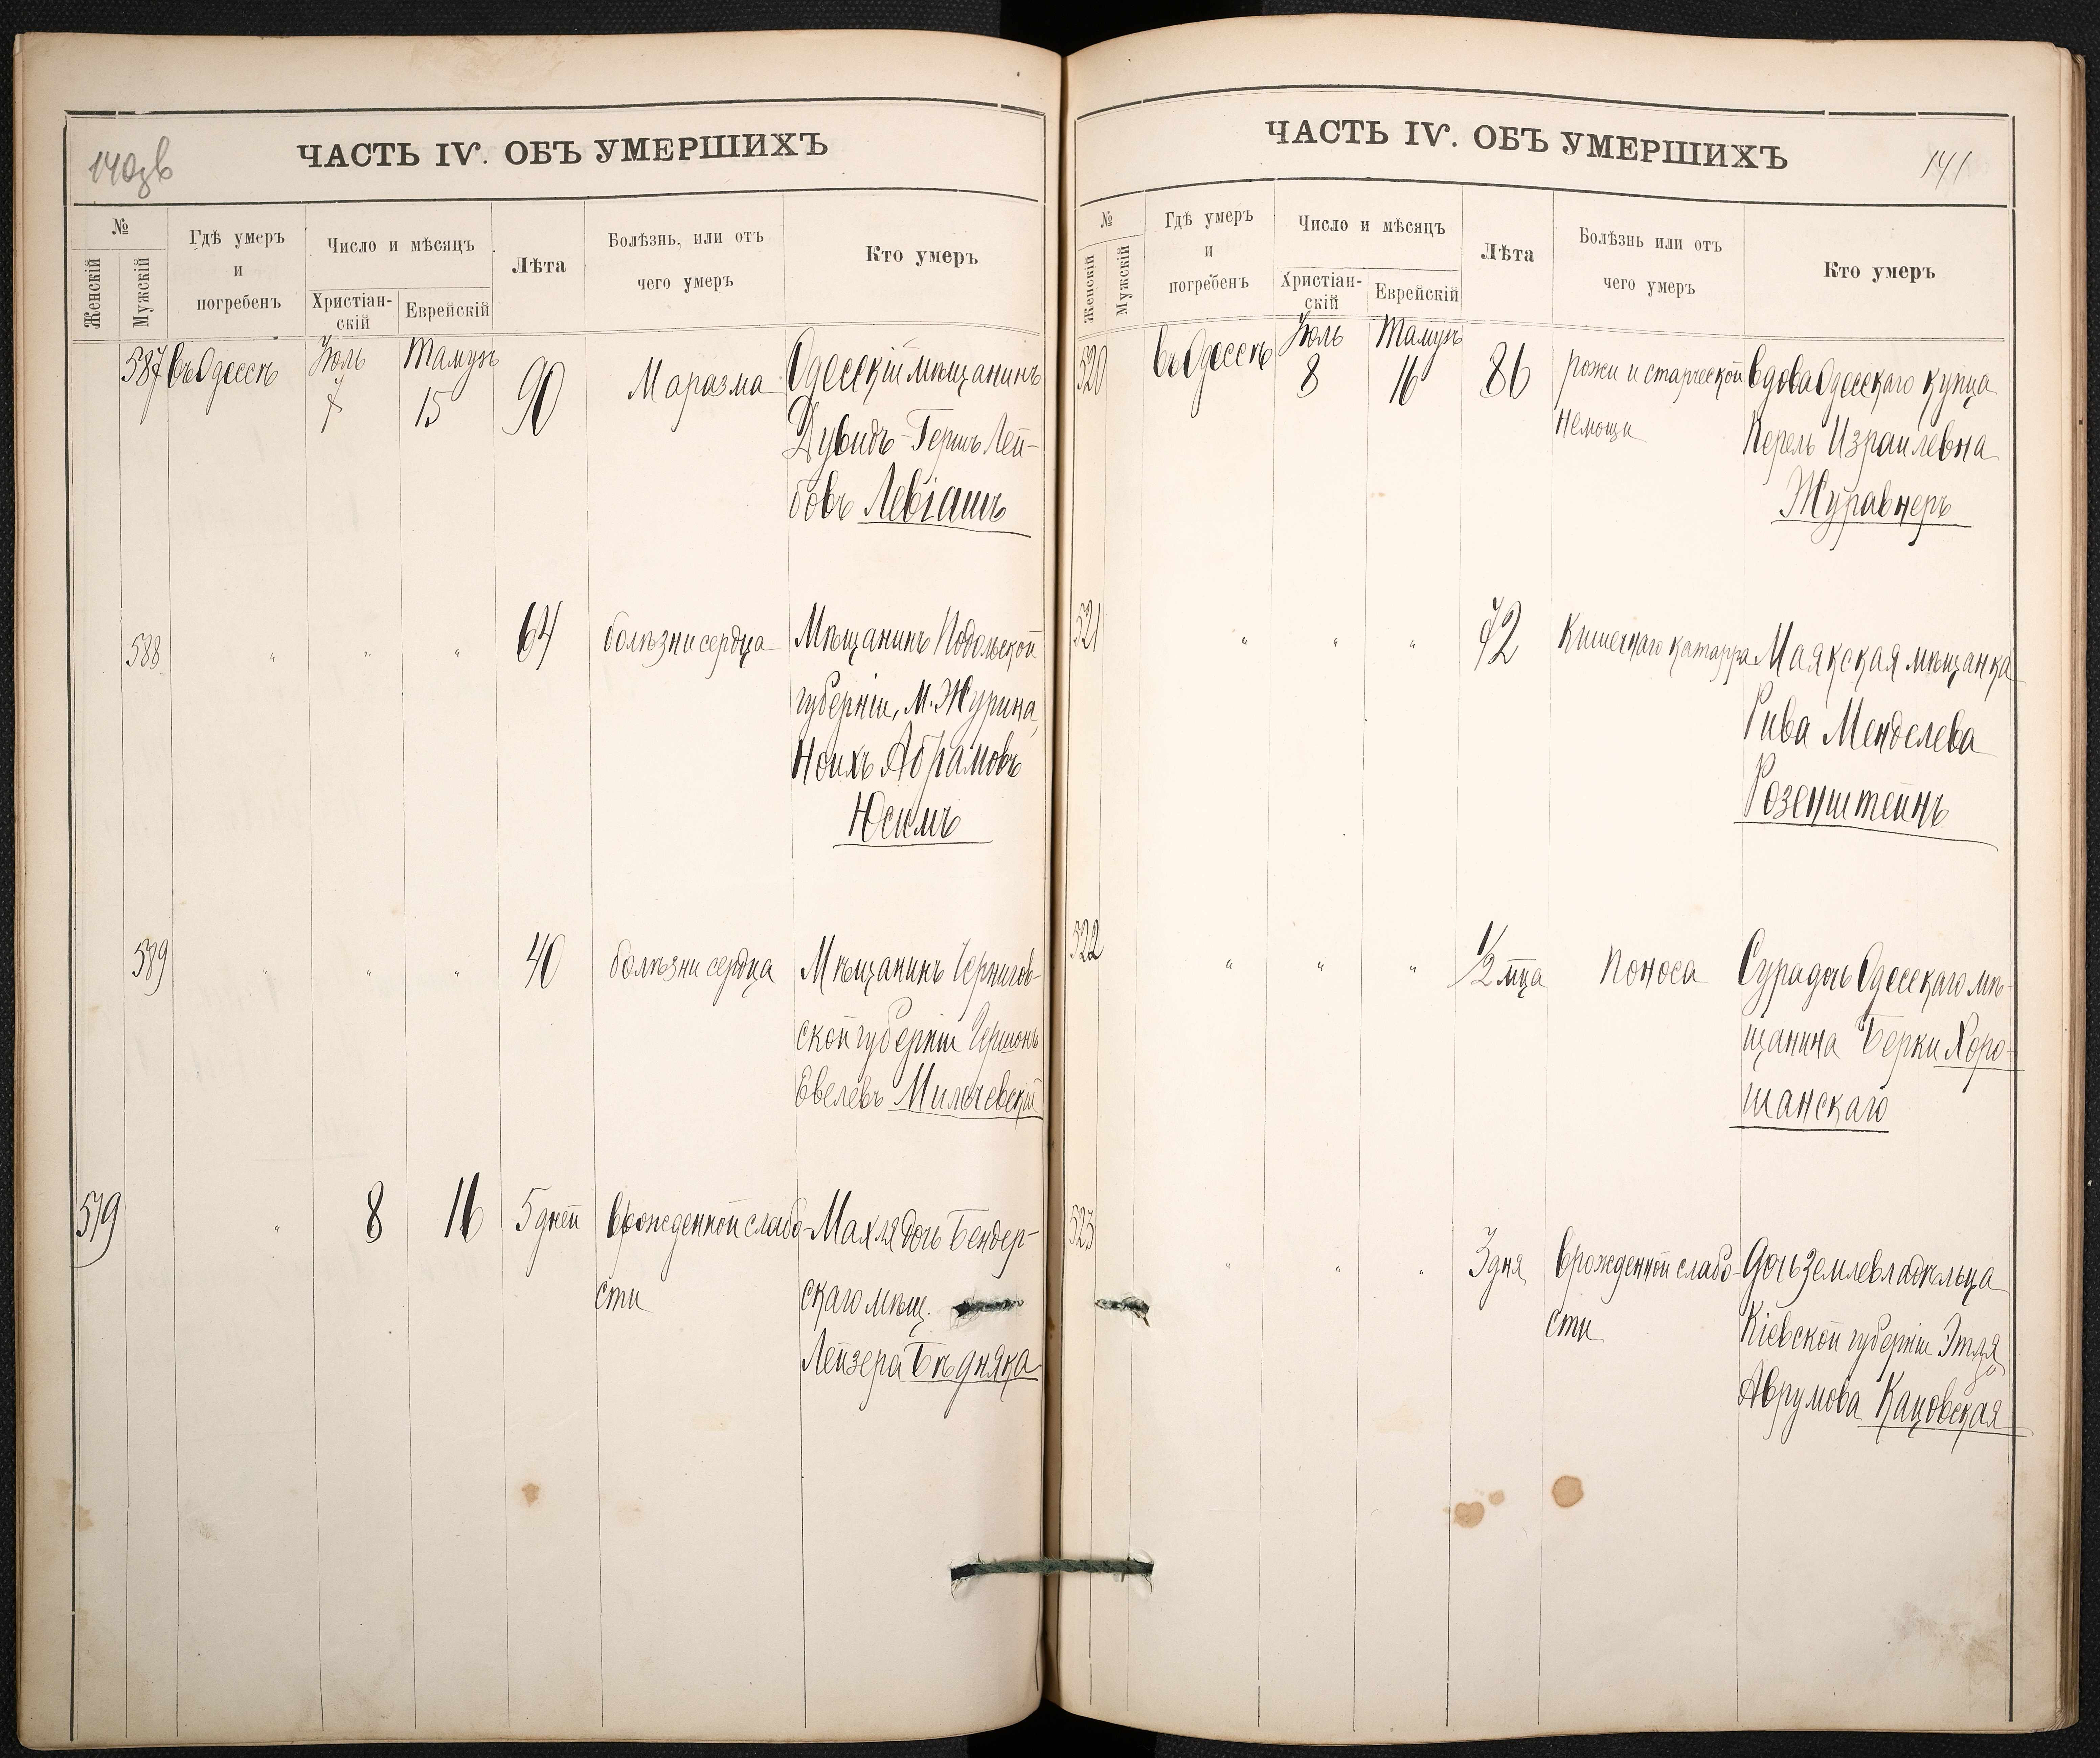 140зв
ЧАСТЬ IV. ОБЪ УМЕРШИХЪ
№
Женскій
Мужскій
Гдѣ умеръ
и
погребенъ
Число и мѣсяцъ
Христіан-
скій
Еврейскій
Лѣта
Болѣзнь, или отъ
чего умеръ
Кто умеръ
587 въ Одессѣ Іюль 7 Тамузъ 15 90 Маразма Одесскій мѣщанинъ
Дувидъ-Гершъ Лей-
бовъ Левіашъ
588 " " " 64 болѣзни сердца Мѣщанинъ Подольской
губерніи, М. Журина,
Ноихъ Абрамовъ
Юсимъ
589 " " " 40 болѣзни сердца Мѣщанинъ Чернигов-
ской губерніи Гершонъ
Евелевъ Милчевскій
519 " 8 16 5 дней врожденной слабо- Махля дочь Бендер-
сти скаго мѣщ.
Лейзера Бѣдняка
ЧАСТЬ IV. ОБЪ УМЕРШИХЪ
141
№
Женскій
Мужскій
Гдѣ умеръ
и
погребенъ
Число и мѣсяцъ
Христіан-
скій
Еврейскій
Лѣта
Болѣзнь или отъ
чего умеръ
Кто умеръ
520 въ Одессѣ Іюль 8 Тамузъ 16 86 рожи и старческой вдова Одесскаго купца
немощи Перель Израилевна
Журавнеръ
521 " " " 72 Кишечнаго катарра Маякская мѣщанка
Рива Менделева
Розенштейнъ
522 " " " 1/2 мца Поноса Сура дочь Одесскаго мѣ-
щанина Берки Хоро-
шанскаго
523 " " " 3 дня врожденной слабо- Дочь землевладѣльца
сти Кіевской губерніи Этля
Аврумова Кацовская